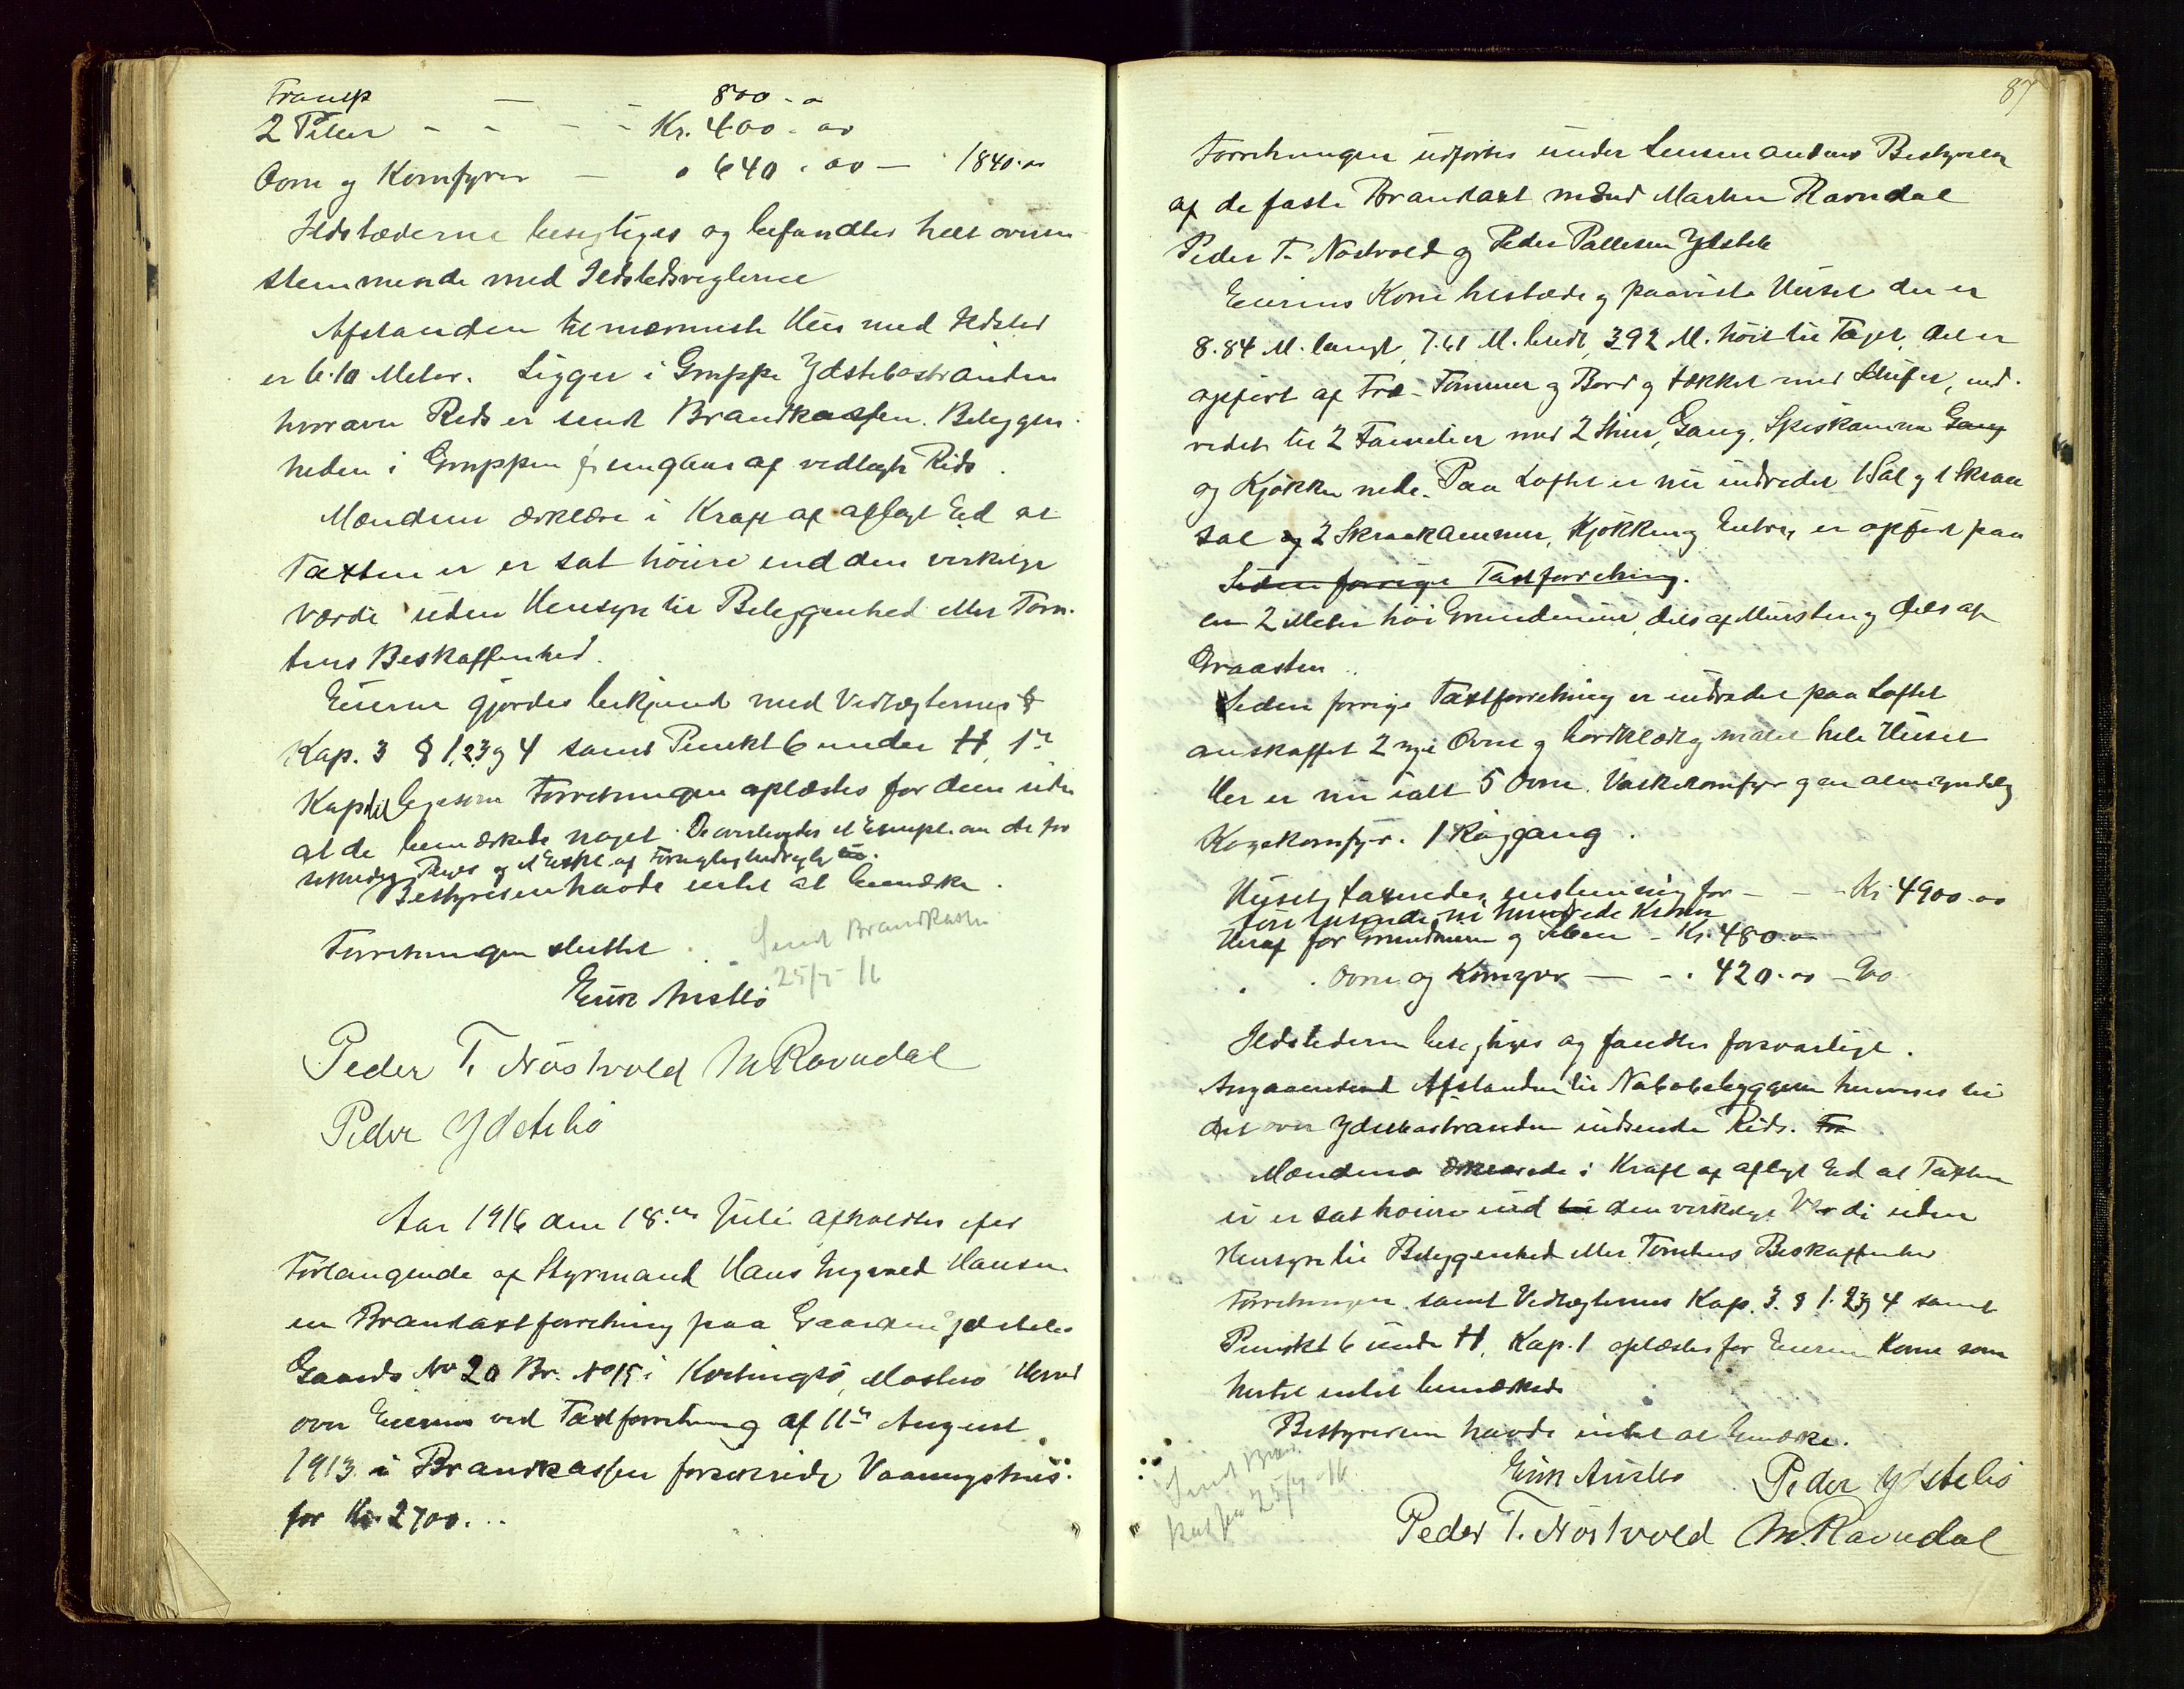 Transp — - 800.-
2 Peber - - - - Kr. 400.00
Ovne og Komfyrer — " 640.00 — 1840.00
Ildstæderne besigtiges og befandtes helt overens
stemmende med Ildstedsreglerne
Afstanden til nærmeste Hus med Ildsted
er 6.10 Meter. Ligger i Gruppe Ydstebøstranden
hvorav Rids er sendt Brandkassen. Beliggen-
heden i Gruppen fremgaar af vedlagte Rids.
Mændene erklære i Kraft af aflagt Ed at
Taxten er ei sat høiere end den virkelige
Værdi uden Hensyn til Beliggenhed eller Tom-
tens Beskaffenhed.
Eieren gjordes bekjend med Vedtægternes
Kap. 3 § 1, 2, 3 og 4 samt Punkt 6 under H, 1ste
Kapitel ligesom Forretningen oplæstes for dem uden
at de bemærkede noget. De overleverdes et Exempl. av de for
Bestyreren havde intet at bemærke.
Forretningen sluttet.
Sendt Brandkassen
25/7 16
Erik Austbø
Peder T. Nöstvold M Ravndal
Peder Ydstebö
Aar 1916 den 18de Juli afholdtes efter
Forlangende af Styrmand Hans Ingvard Hansen
en Brandtaxtforretning paa Gaarden Ydstebø
Gaards No 20 Br. No 15 i Kvitingsö, Mosterö Herred
over Eierens ved Taxtforretning af 11te August
1913 i Brandkassen forsikrede Vaaningshus
for Kr. 2700...
87
Forretningen udførtes under Lensmandens Bestyrelse
af de faste Brandtaxtmænd Martin Ravndal
Peder T. Nöstvold og Peder Pallesen Ydstebø
Eierens Kone tilstede og paaviste Huset der er
8.84 M. langt, 7.61 M. bredt, 3.92 M. höit til Taget, det er
opført af Træ - Tømmer og Bord og tækket med Skifer, ind-
redet til 2 Familier med 2 Stuer, Gang, Spiskammer Gang
og Kjøkken nede. Paa Loftet er nu indredet 1 Sal og 1 Skraa
sal og 2 Skraakammer, Kjøkken og Entre, er opført paa
Siden forrige Taxtforretning.
en 2 Meter høi Grundmur, dels af Mursten og dels af
Graasten.
Siden forrige Taxtforretning er indredet paa Loftet
anskaffet 2 nye Ovne og bordklædt og malet hele Huset
Her er nu ialt 5 Ovne, Vaskekomfyr og en almindelig
Kogekomfyr. 1 Röggang.
Huset taxeredes enstemmig for - - - Kr. 4900.00
fire tusende ni hundrede Kroner
Heraf for Grundmuren og Piben - Kr. 480.00
" " Ovne og Komfyr — - " 420.00 - 900
Ildstederne besigtiges og fandtes forsvarlige.
Angaaende Afstanden til Nabobebyggelsen henvises til
det over Ydstebøstranden indsendte Rids. For
Mændene erklærede i Kraft af aflagt Ed at Taxten
ei er sat høiere end til den virkelige Værdi uden
Hensyn til Beliggenhed eller Tomtens Beskaffenhed
Forretningen samt Vedtægternes Kap. 3. § 1. 2. 3 og 4 samt
Punkt 6 under H, Kap. 1 oplæstes for Eierens Kone som
hertil intet bemærkede
Bestyreren havde intet at bemærke.
Sendt Brand
kassen 25/7-16.
Erik Austbø Peder Ydstebö
Peder T. Nöstvold M. Ravndal